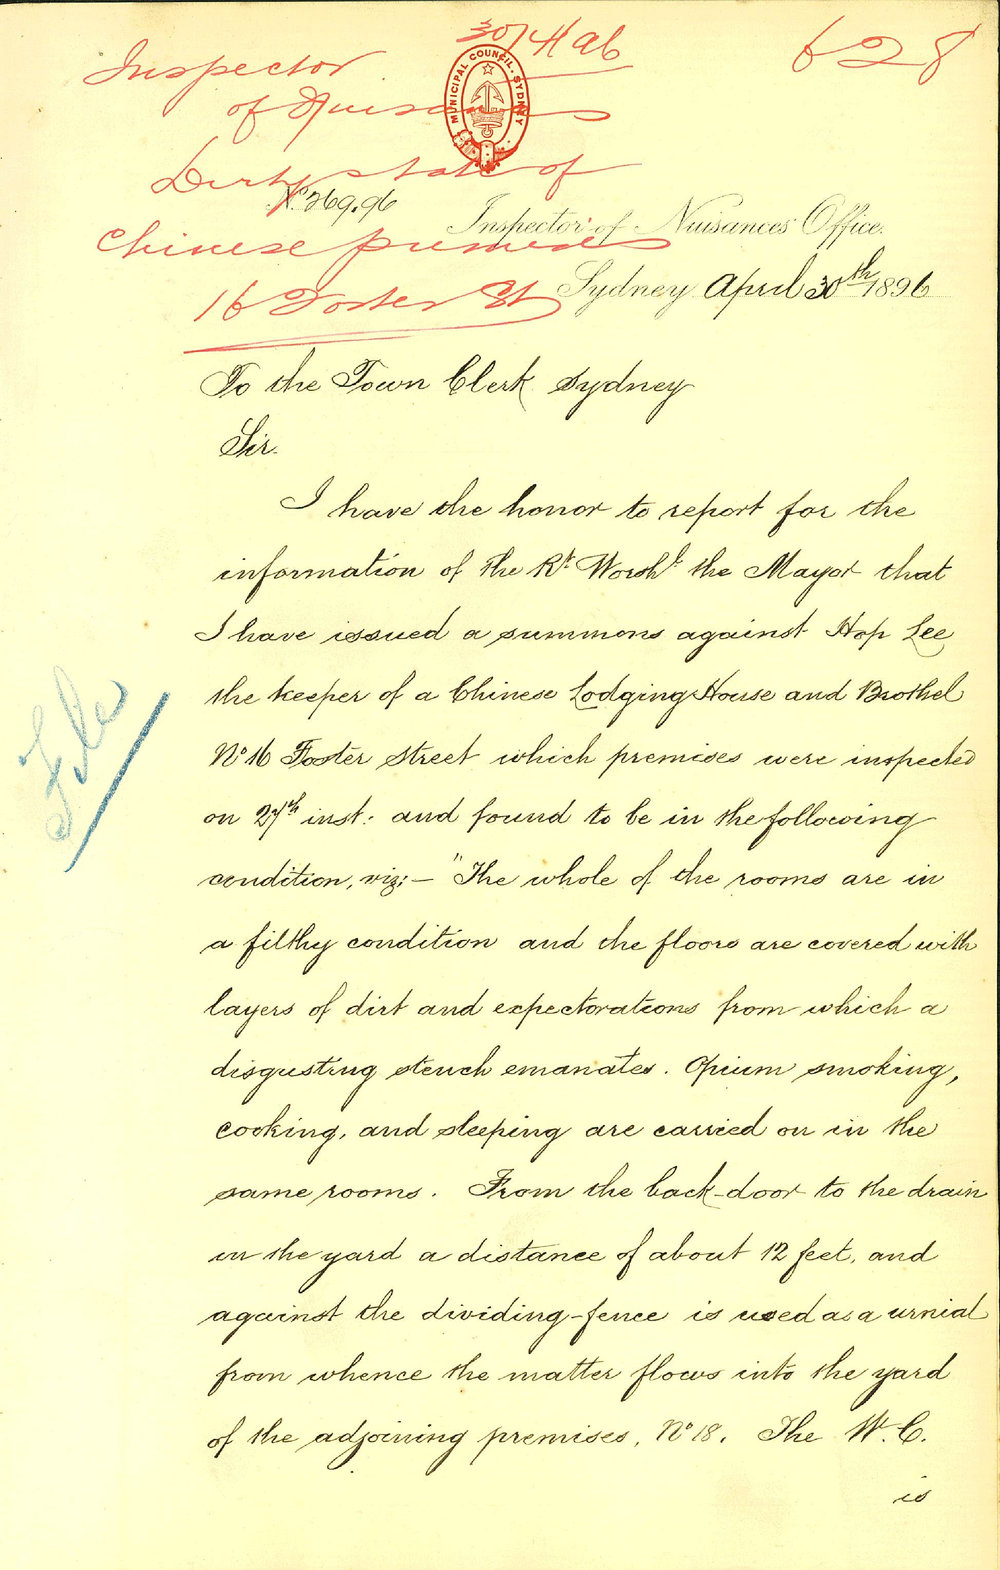 30/4/96
628
Inspector
of Nuisances
MUNICIPAL COUNCIL. SYDNEY
Dirty state of
No. 269.96
Inspector of Nuisances Office.
Chinese premises
16 Foster St
Sydney April 30th 1896
To the Town Clerk Sydney
Sir.
I have the honor to report for the
information of the Rt. Worshl. the Mayor that
I have issued a summons against Hop Lee
the keeper of a Chinese Lodging House and Brothel
No 16 Foster Street which premises were inspected
File
on 27th inst: and found to be in the following
condition, viz;— "The whole of the rooms are in
a filthy condition and the floors are covered with
layers of dirt and expectorations from which a
disgusting stench emanates. Opium smoking,
cooking, and sleeping are carried on in the
same rooms. From the back-door to the drain
in the yard a distance of about 12 feet, and
against the dividing-fence is used as a urnial
from whence the matter flows into the yard
of the adjoining premises, No 18. The W.C.
is